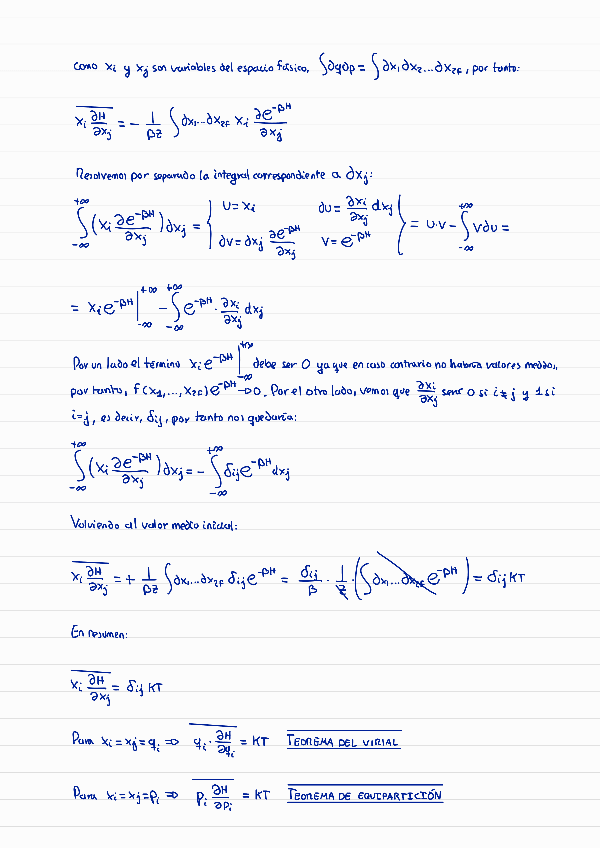 Como xi y xj son variables del espacio fásico, ∫∂q∂p = ∫∂x₁∂x₂...∂x₂f, por tanto:
xi ∂H/∂xj = - 1/βZ ∫∂x₁...∂x₂f xi ∂e^-βH/∂xj
Resolvemos por separado la integral correspondiente a ∂xj:
∫_-∞^+∞ (xi ∂e^-βH/∂xj)∂xj = { U = xi ∂U = ∂xi/∂xj dxj ∂V = ∂xj ∂e^-βH/∂xj V = e^-βH } = U·V - ∫_-∞^+∞ V∂U =
= xi e^-βH |_-∞^+∞ - ∫_-∞^+∞ e^-βH · ∂xi/∂xj dxj
Por un lado el término xi e^-βH |_-∞^+∞ debe ser 0 ya que en caso contrario no habría valores medios,
por tanto, f(x₁,...,x₂f)e^-βH → 0. Por el otro lado, vemos que ∂xi/∂xj será 0 si i≠j y 1 si
i=j, es decir, δij, por tanto nos quedaría:
∫_-∞^+∞ (xi ∂e^-βH/∂xj)∂xj = - ∫_-∞^+∞ δij e^-βH dxj
Volviendo al valor medio inicial:
xi ∂H/∂xj = + 1/βZ ∫∂x₁...∂x₂f δij e^-βH = δij/β · 1/Z · (∫∂x₁...∂x₂f e^-βH) = δij KT
En resumen:
xi ∂H/∂xj = δij KT
Para xi = xj = qi ⇒ qi · ∂H/∂qi = KT TEOREMA DEL VIRIAL
Para xi = xj = pi ⇒ pi ∂H/∂pi = KT TEOREMA DE EQUIPARTICIÓN